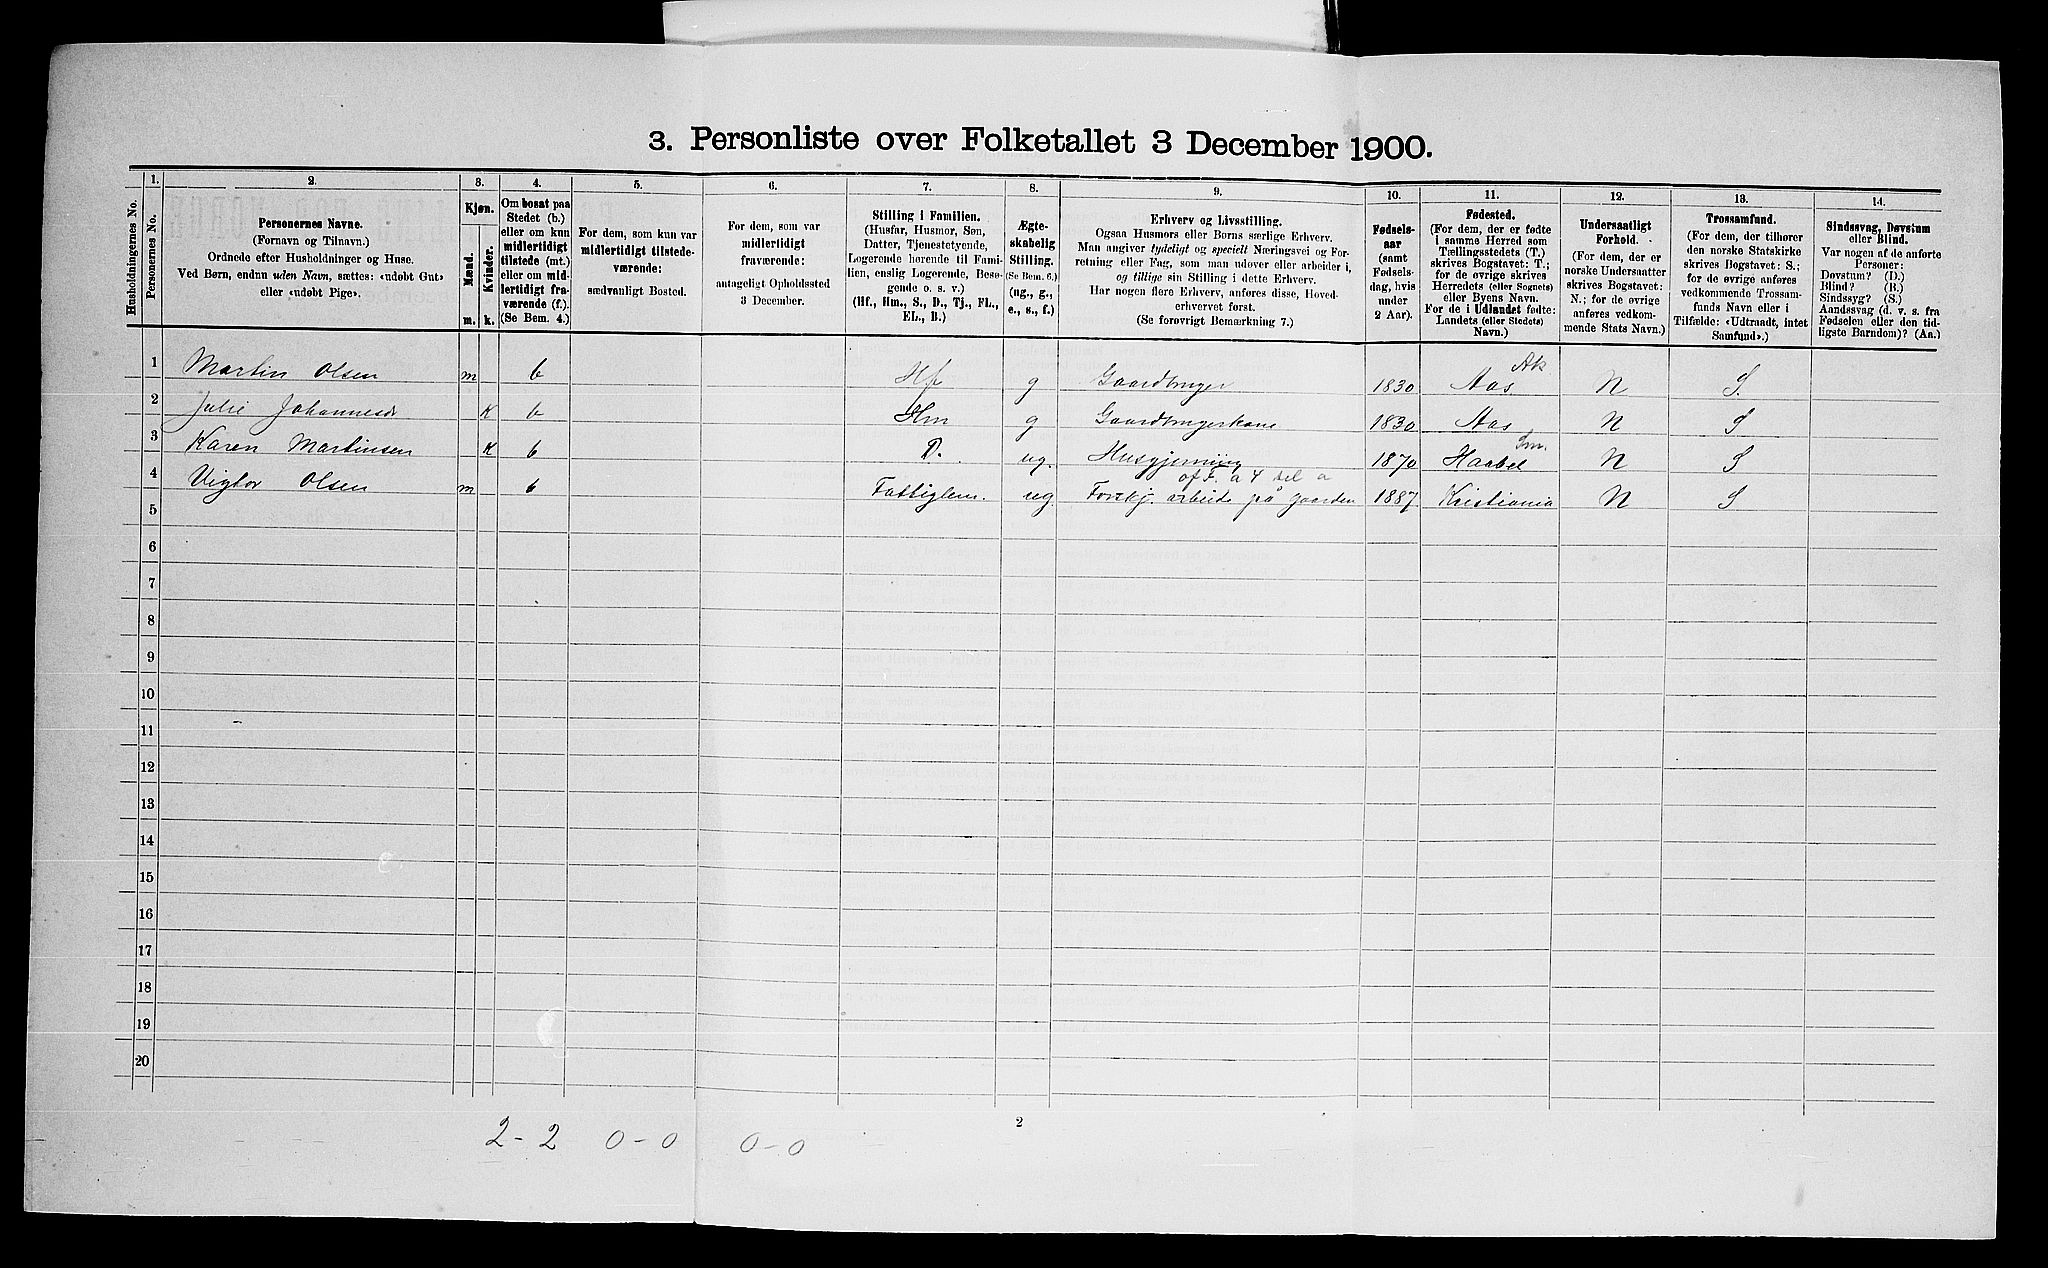 3. Personliste over Folketallet 3 December 1900.
Husholdningernes No.
1.
Personernes No.
2.
Personernes Navne.
(Fornavn og Tilnavn.)
Ordnede efter Husholdninger og Huse.
Ved Børn, endnu uden Navn, sættes: «udøbt Gut»
eller «udøbt Pige».
3.
Kjøn.
Mænd.
Kvinder.
m. k.
4.
Om bosat paa
Stedet (b.)
eller om kun
midlertidigt
tilstede (mt.)
eller om mid-
lertidigt fra-
værende (f.).
(Se Bem. 4.)
5.
For dem, som kun var
midlertidigt tilstede-
værende:
sædvanligt Bosted.
6.
For dem, som var
midlertidigt
fraværende:
antageligt Opholdssted
3 December.
7.
Stilling i Familien.
(Husfar, Husmor, Søn,
Datter, Tjenestetyende,
Logerende hørende til Fami-
lien, enslig Logerende, Besø-
gende o. s. v.)
(Hf., Hm., S., D., Tj., FL.,
EL., B.)
8.
Ægte-
skabelig
Stilling.
(Se Bem. 6.)
(ug., g.,
e., s., f.)
9.
Erhverv og Livsstilling.
Ogsaa Husmors eller Børns særlige Erhverv.
Man angiver tydeligt og specielt Næringsvei og For-
retning eller Fag, som man udøver eller arbeider i,
og tillige sin Stilling i dette Erhverv.
Har nogen flere Erhverv, anføres disse, Hoved-
erhvervet først.
(Se forøvrigt Bemærkning 7.)
10.
Fødsels-
aar
(samt
Fødsels-
dag, hvis
under
2 Aar).
11.
Fødested.
(For dem, der er fødte
i samme Herred som
Tællingsstedets (T.)
skrives Bogstavet: T.;
for de øvrige skrives
Herredets (eller Sognets)
eller Byens Navn.
For de i Udlandet fødte:
Landets (eller Stedets)
Navn.)
12.
Undersaatligt
Forhold.
(For dem, der er
norske Undersaatter
skrives Bogstavet:
N.; for de øvrige
anføres vedkom-
mende Stats Navn.)
13.
Trossamfund.
(For dem, der tilhører
den norske Statskirke
skrives Bogstavet: S.;
for de øvrige anføres
vedkommende Trossam-
funds Navn eller i
Tilfælde: «Udtraadt, intet
Samfund».)
14.
Sindssvag, Døvstum
eller Blind.
Var nogen af de anførte
Personer:
Døvstum? (D.)
Blind? (B.)
Sindssyg? (S.)
Aandssvag (d. v. s. fra
Fødselen eller den tid-
ligste Barndom)? (Aa.)
1 Martin Olsen m b Hf g Gaardbruger 1830 Aas Ak N S.
2 Julie Johannesd. K b Hm g Gaardbrugerkone 1830 Aas N S
3 Karen Martinsen K b D. ug. Husgjerning 1870 Haabøl Sm. N S
4 Vigtor Olsen m b Fattiglem. ug. Forskj. arbeide på gaarden 1887 Kristiania N S
5
6
7
8
9
10
11
12
13
14
15
16
17
18
19
20
2
2-2 0-0 0-0